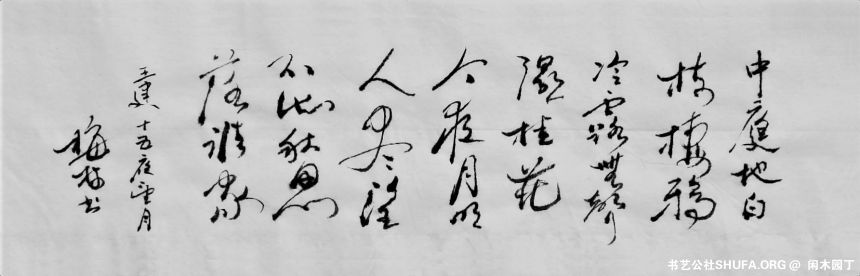 中庭地白
樹棲鴉
冷露無聲
濕桂花
今夜月明
人盡望
不知秋思
落誰家
王建十五夜望月
梅書
书艺公社SHUFA.ORG @ 闲木园丁